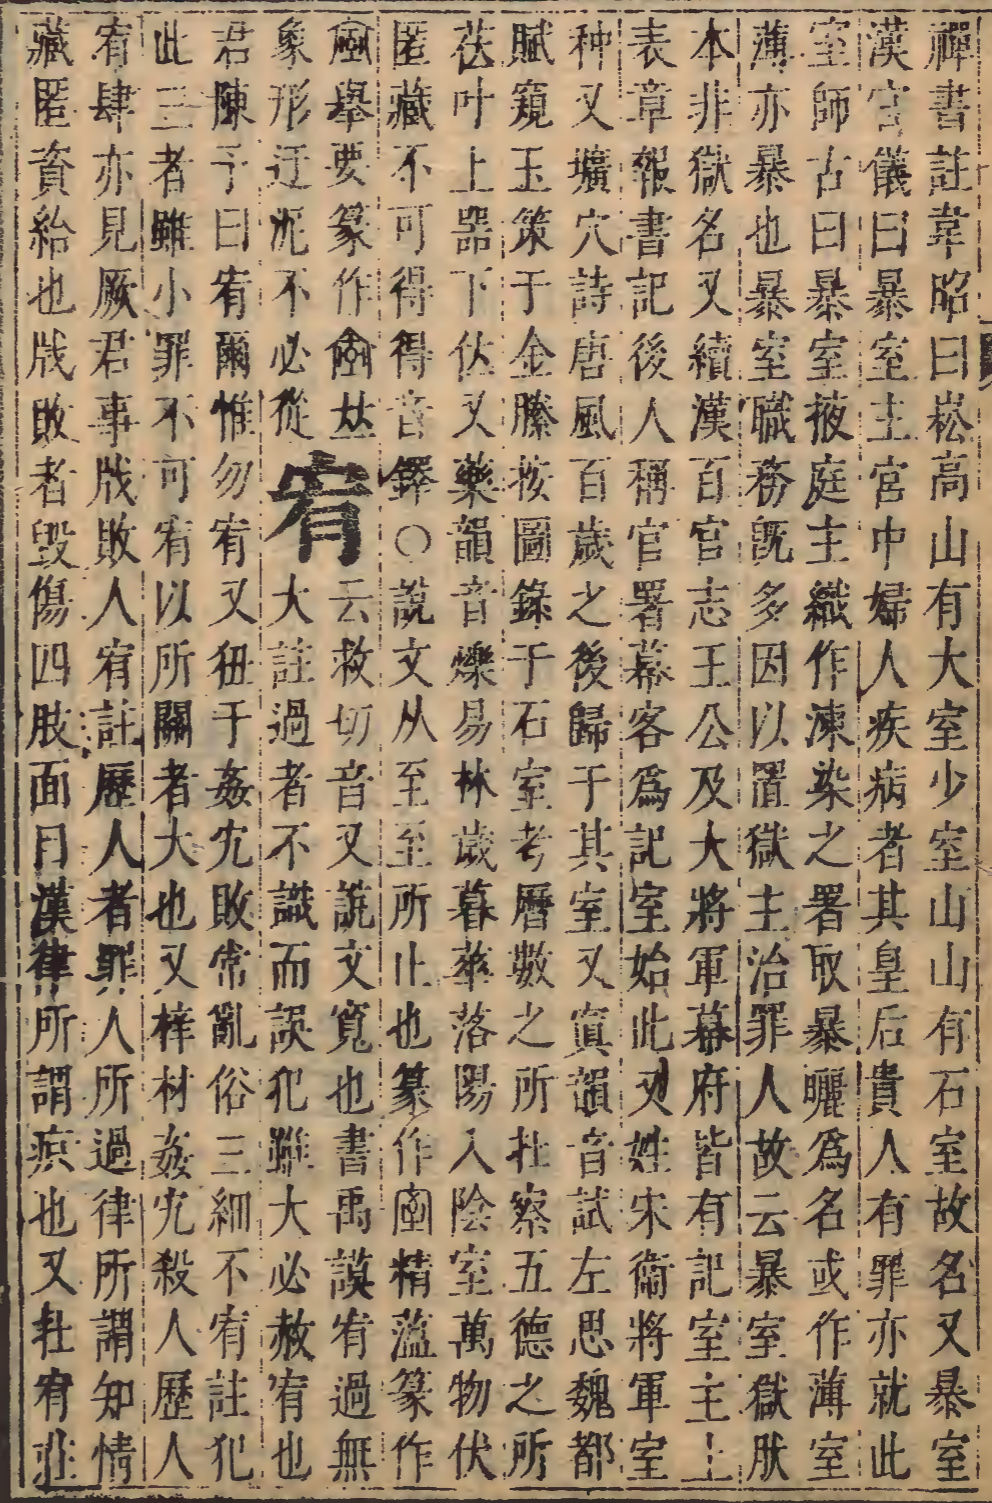 禪書註韋昭曰崧高山有大室少室山山有石室故名又暴室
漢官儀曰暴室主宮中婦人疾病者其皇后貴人有罪亦就此
室師古曰暴室掖庭主織作湅染之署取暴曬爲名或作薄室
薄亦暴也暴室職務旣多因以置獄主治罪人故云暴室獄肰
本非獄名又續漢百官志王公及大將軍幕府皆有記室主上
表章報書記後人稱官署幕客爲記室始此又姓宋衛將軍室
种又壙穴詩唐風百歲之後歸于其室又寘韻音試左思魏都
賦窺玉策于金縢按圖錄于石室考曆數之所在察五德之所
莅叶上器下位又藥韻音爍易林歲暮華落陽入陰室萬物伏
匿藏不可得得音鐸○說文从至至所止也篆作𡨾精薀篆作
舉要篆作𠀤
象形迂泥不必從
宥
云救切音又說文寬也書禹謨宥過無
大註過者不識而誤犯雖大必赦宥也
君陳予曰宥爾惟勿宥又狃于姦宄敗常亂俗三細不宥註犯
此三者雖小罪不可宥以所關者大也又梓材姦宄殺人歷人
宥肆亦見厥君事戕敗人宥註歷人者罪人所過律所謂知情
藏匿資給也戕敗者毀傷四肢面目漢律所謂疻也又在宥莊